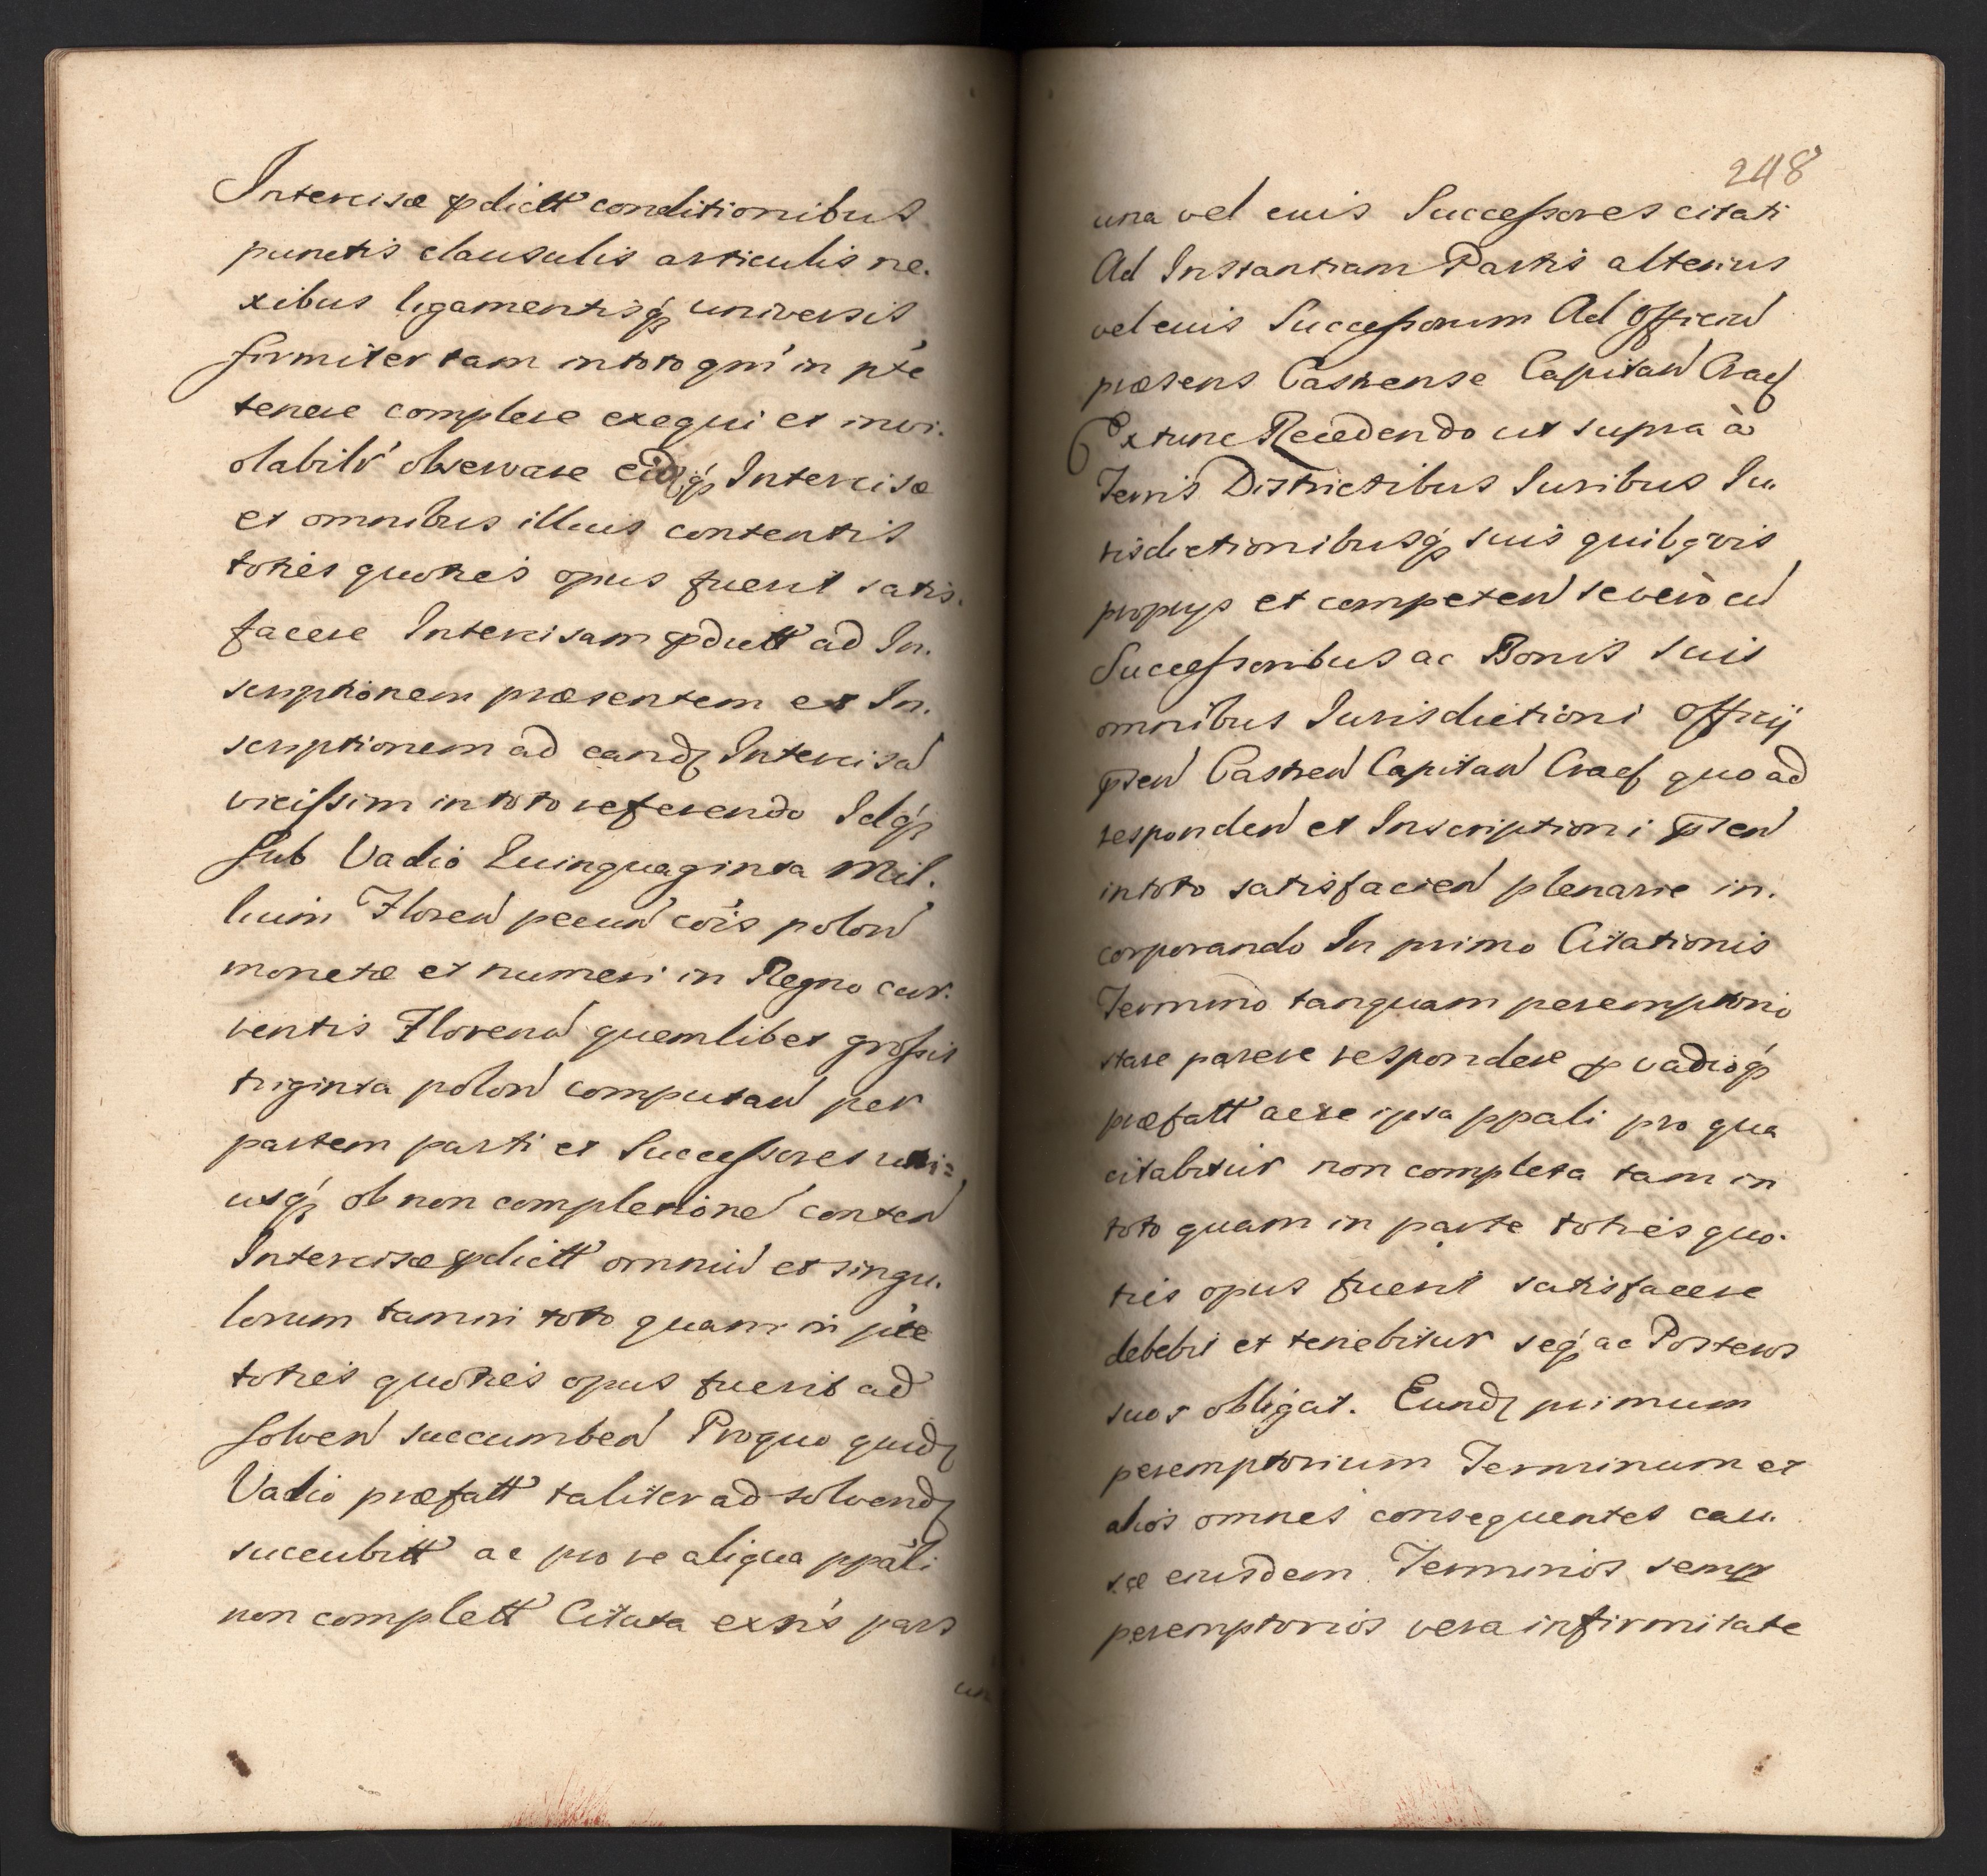 Intercisæ pdictt conditionibus
punctis clausulis articulis ne.
xibus ligamentisq́ universis
firmiter tam in toto qm̃ in pte
tenere complere exequi et invi.
olabilr̃ observare eidq́ Intercisæ
et omnibus illius contentis
toties quoties opus fuerit satis.
facere Intercisam pdictt ad In.
scriptionem præsentem et In.
scriptionem ad eandꝫ Intercisã
vicissim in toto referendo Idq́
sub Vadio Quinquaginta Mil.
lium Floreñ pecuñ cõis poloñ
monetæ et numeri in Regno cur.
rentis Florenũ quemlibet grossis
triginta poloñ computañ per
partem parti et Successores utri=
usq́ ob non completionẽ conteñ
Intercisæ pdictt omniũ et singu.
lorum tam in toto quam in pte
toties quoties opus fuerit ad
solveñ succumbeñ Pro quo quidꝫ
Vadio præfatt taliter ad solvendꝫ
succubitt ac pro re aliqua ppali
non complett Citata extñs pars
un
248
una vel eius Successores citati
Ad Instantiam Partis alterius
vel eius Successorum Ad Officiũ
præsens Castrense Capitañ Cracꝭ
Extunc Recedendo ut supra à
Terris Districtibus Iuribus Iu.
risdictionibusq́ suis quibqvis
proprys et competeñ se verò cũ
Successoribus ac Bonis suis
omnibus Iurisdictioni Officij
pseñ Castreñ Capitañ Cracꝭ quo ad
respondeñ et Inscriptioni pseñ
in toto satisfacieñ plenarie in.
corporando In primo Citationis
Termino tanquam peremptorio
stare parere respondere p vadioq́
præfatt ac re ipsa ppali pro qua
citabitur non completa tam in
toto quam in parte toties quo.
ties opus fuerit satisfacere
debebit et tenebitur seq́ ac Posteros
suos obligat. Eundꝫ primum
peremptorium Terminum et
alios omnes consequentes cau.
sæ eiusdem Terminos semp
peremptorios vera infirmitate